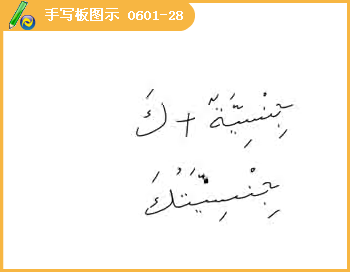 手写板图示 0601-28
جِنْسِيَّةٌ + كَ
جِنْسِيَّتُكَ